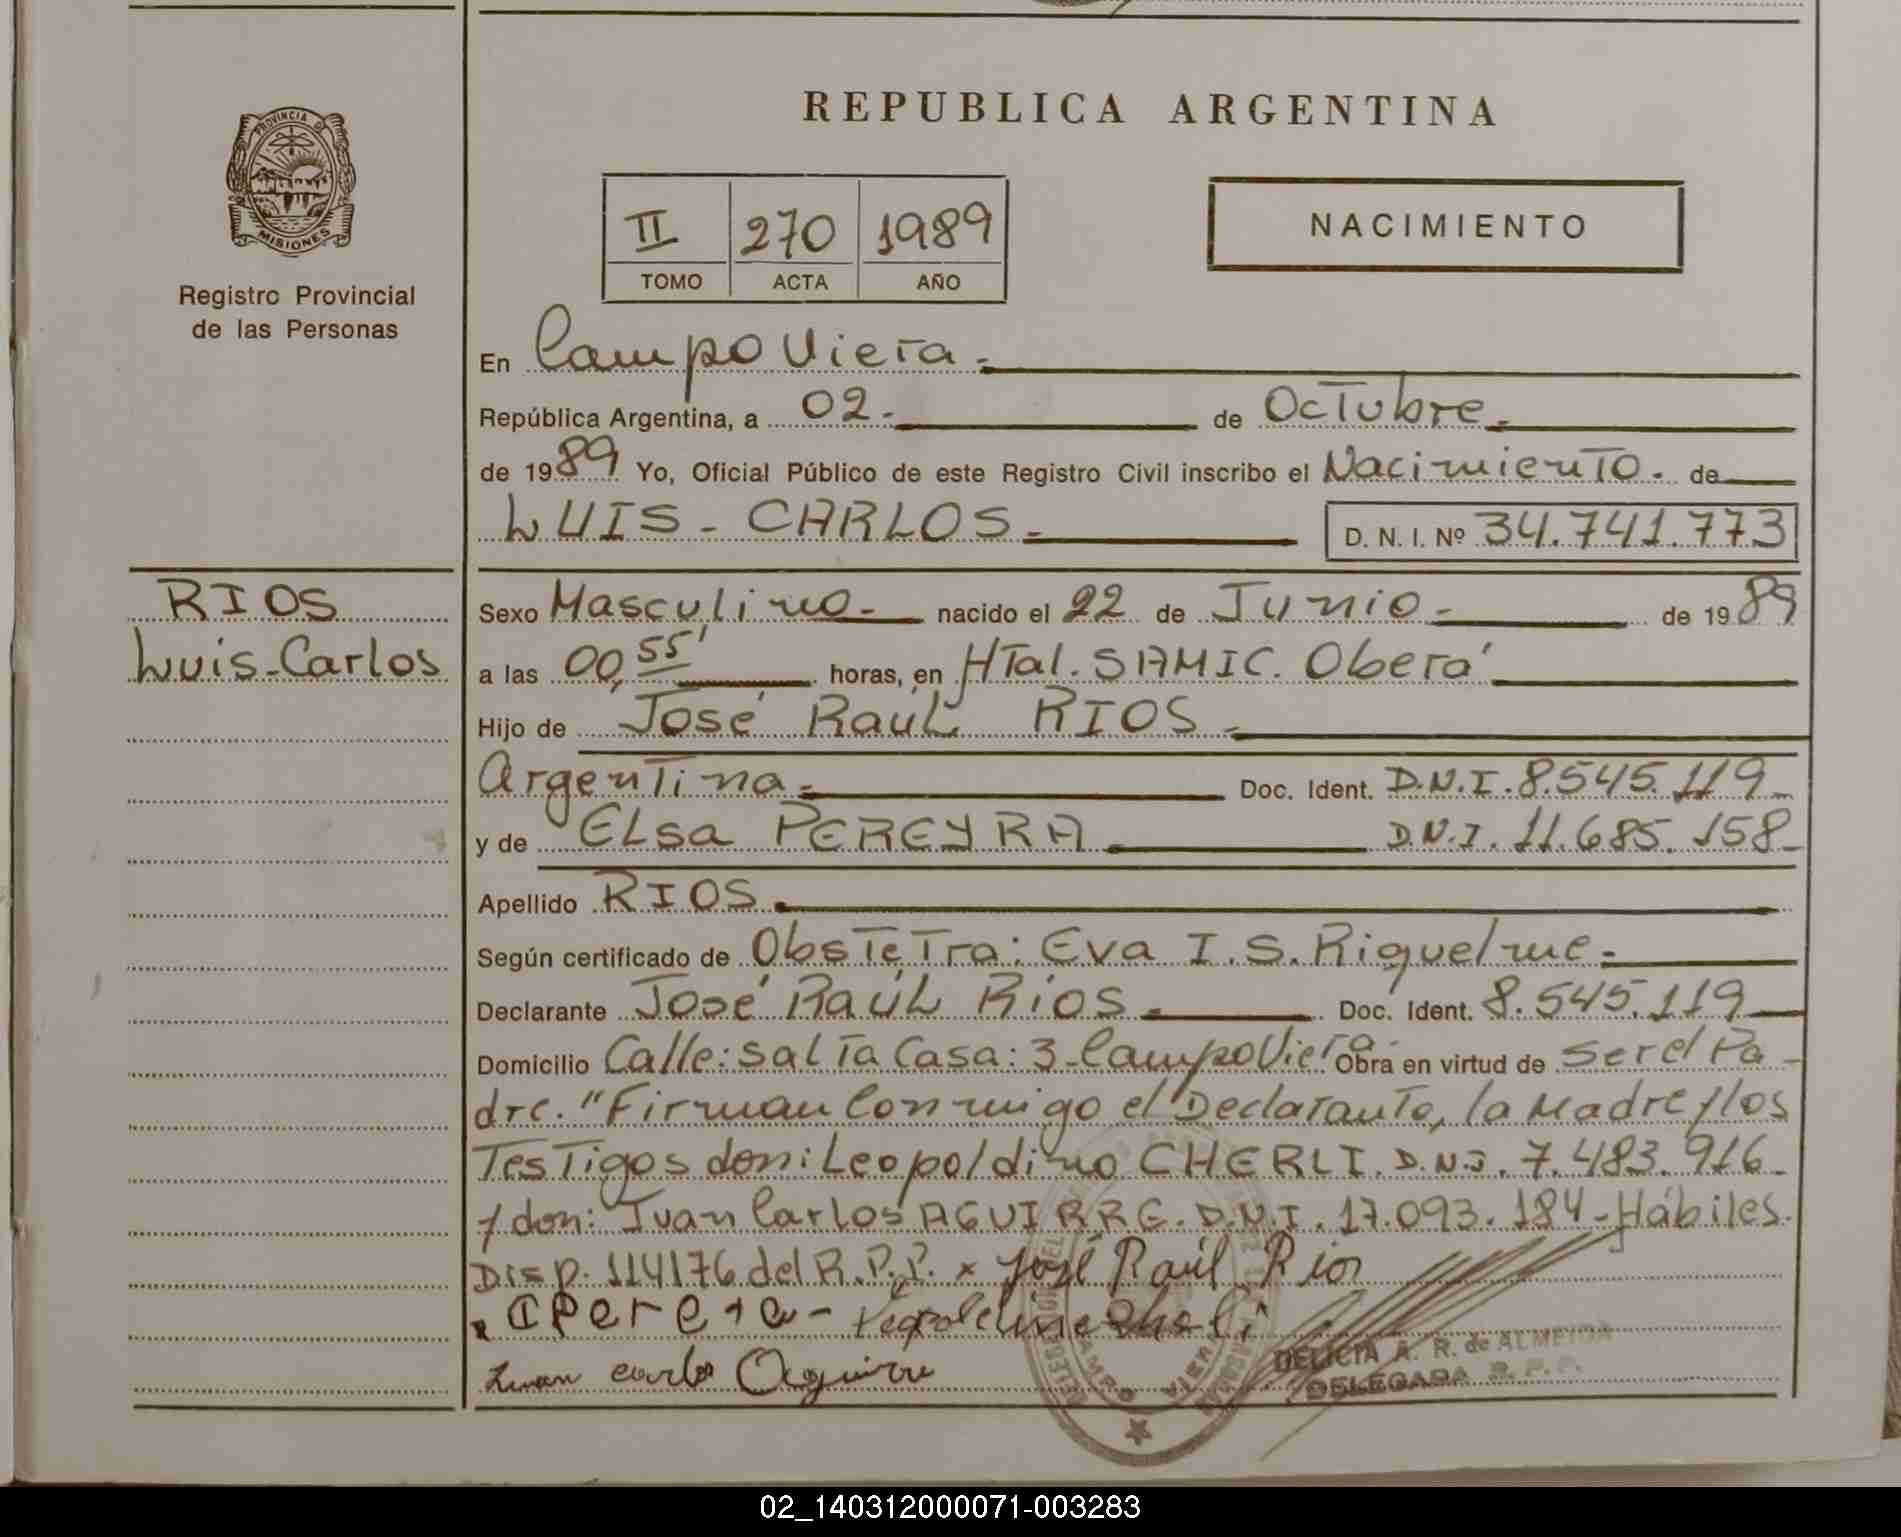 REPUBLICA ARGENTINA
PROVINCIA D
MISIONES
Registro Provincial
de las Personas
II 270 1989
TOMO ACTA AÑO
NACIMIENTO
En Campo Viera.
República Argentina, a 02. de Octubre.
de 1989 Yo, Oficial Público de este Registro Civil inscribo el Nacimiento. de
LUIS - CARLOS. D. N. I. Nº 34.741.773
RIOS
Luis-Carlos
Sexo Masculino. nacido el 22 de Junio. de 1989
a las 00,55' horas, en HTal. SAMIC. Oberá
Hijo de José Raúl RIOS.
Argentina. Doc. Ident. D.N.I. 8.545.119
y de ELsa PEREYRA D.N.I. 11.685.158
Apellido RIOS.
Según certificado de Obstétra: Eva I.S. Riquelme.
Declarante José Raúl Rios. Doc. Ident. 8.545.119
Domicilio Calle: salta Casa: 3-Campo Viera. Obra en virtud de ser el Pa-
dre. "Firman Conmigo el Declarante, la Madre y los
Testigos don: Leopoldino CHERLI. D.N.I. 7.483.916
y don: Juan Carlos AGUIRRE. D.N.I. 17.093.184-Hábiles.
Disp. 114176 del R.P.P. x José Raúl Rios
Juan carlo Aguirre
DELICIA A. R. de ALMEIDA
DELEGADA R. P. P.
02_140312000071-003283